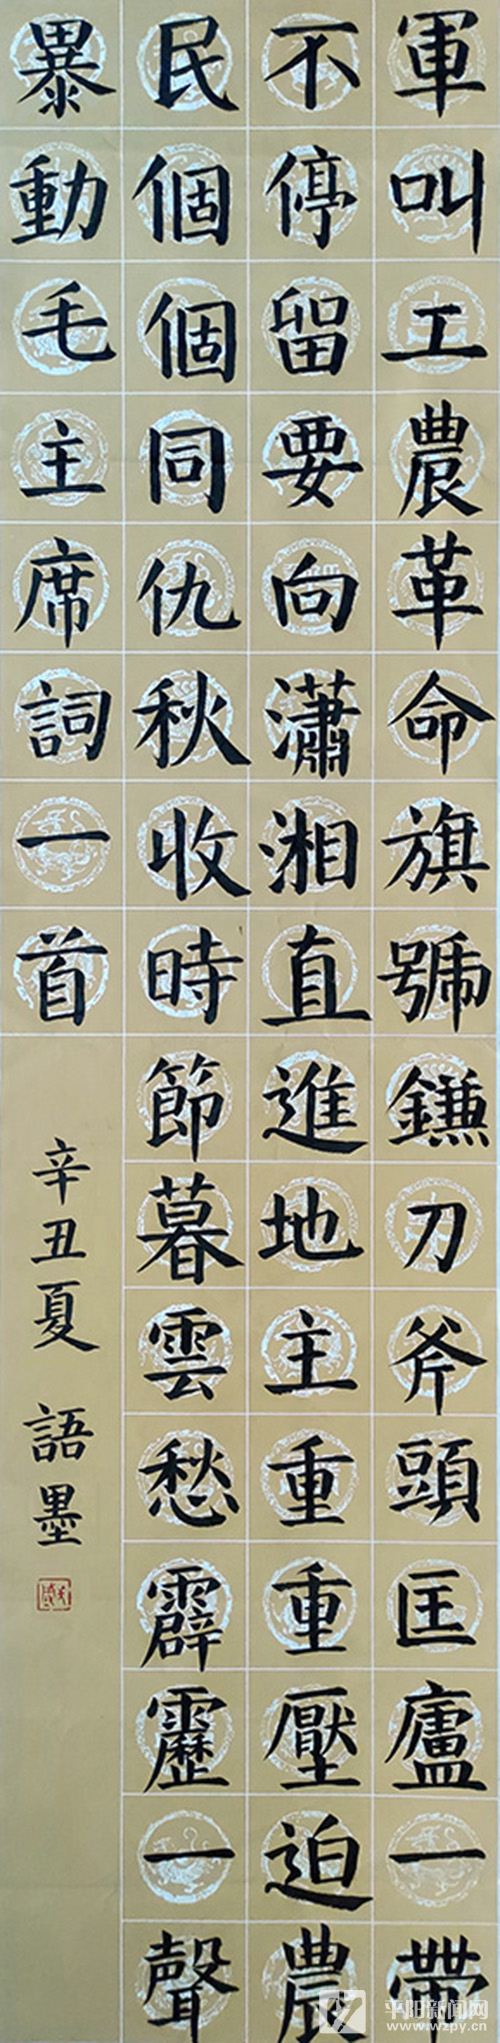 軍叫工農革命旗號鐮刀斧頭匡廬一帶
不停留要向瀟湘直進地主重重壓迫農
民個個同仇秋收時節暮雲愁霹靂一聲
暴動毛主席詞一首
辛丑夏 語墨
平阳新闻网
www.wzpy.cn